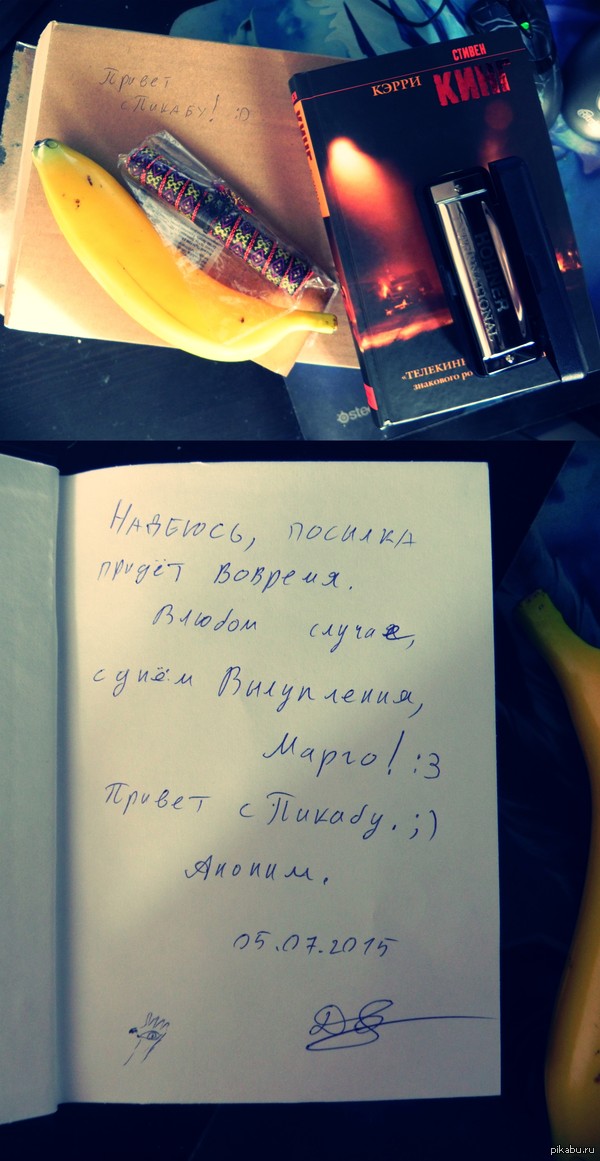 Привет
с Пикабу! :D
СТИВЕН
КИНГ
КЭРРИ
КИНГ
HOHNER
«ТЕЛЕКИН
знакового ро
stee
Надеюсь, посылка
придёт вовремя.
В любом случае,
с днём Вылупления,
Марго! :3
Привет с Пикабу. ;)
Аноним.
05.07.2015
pikabu.ru